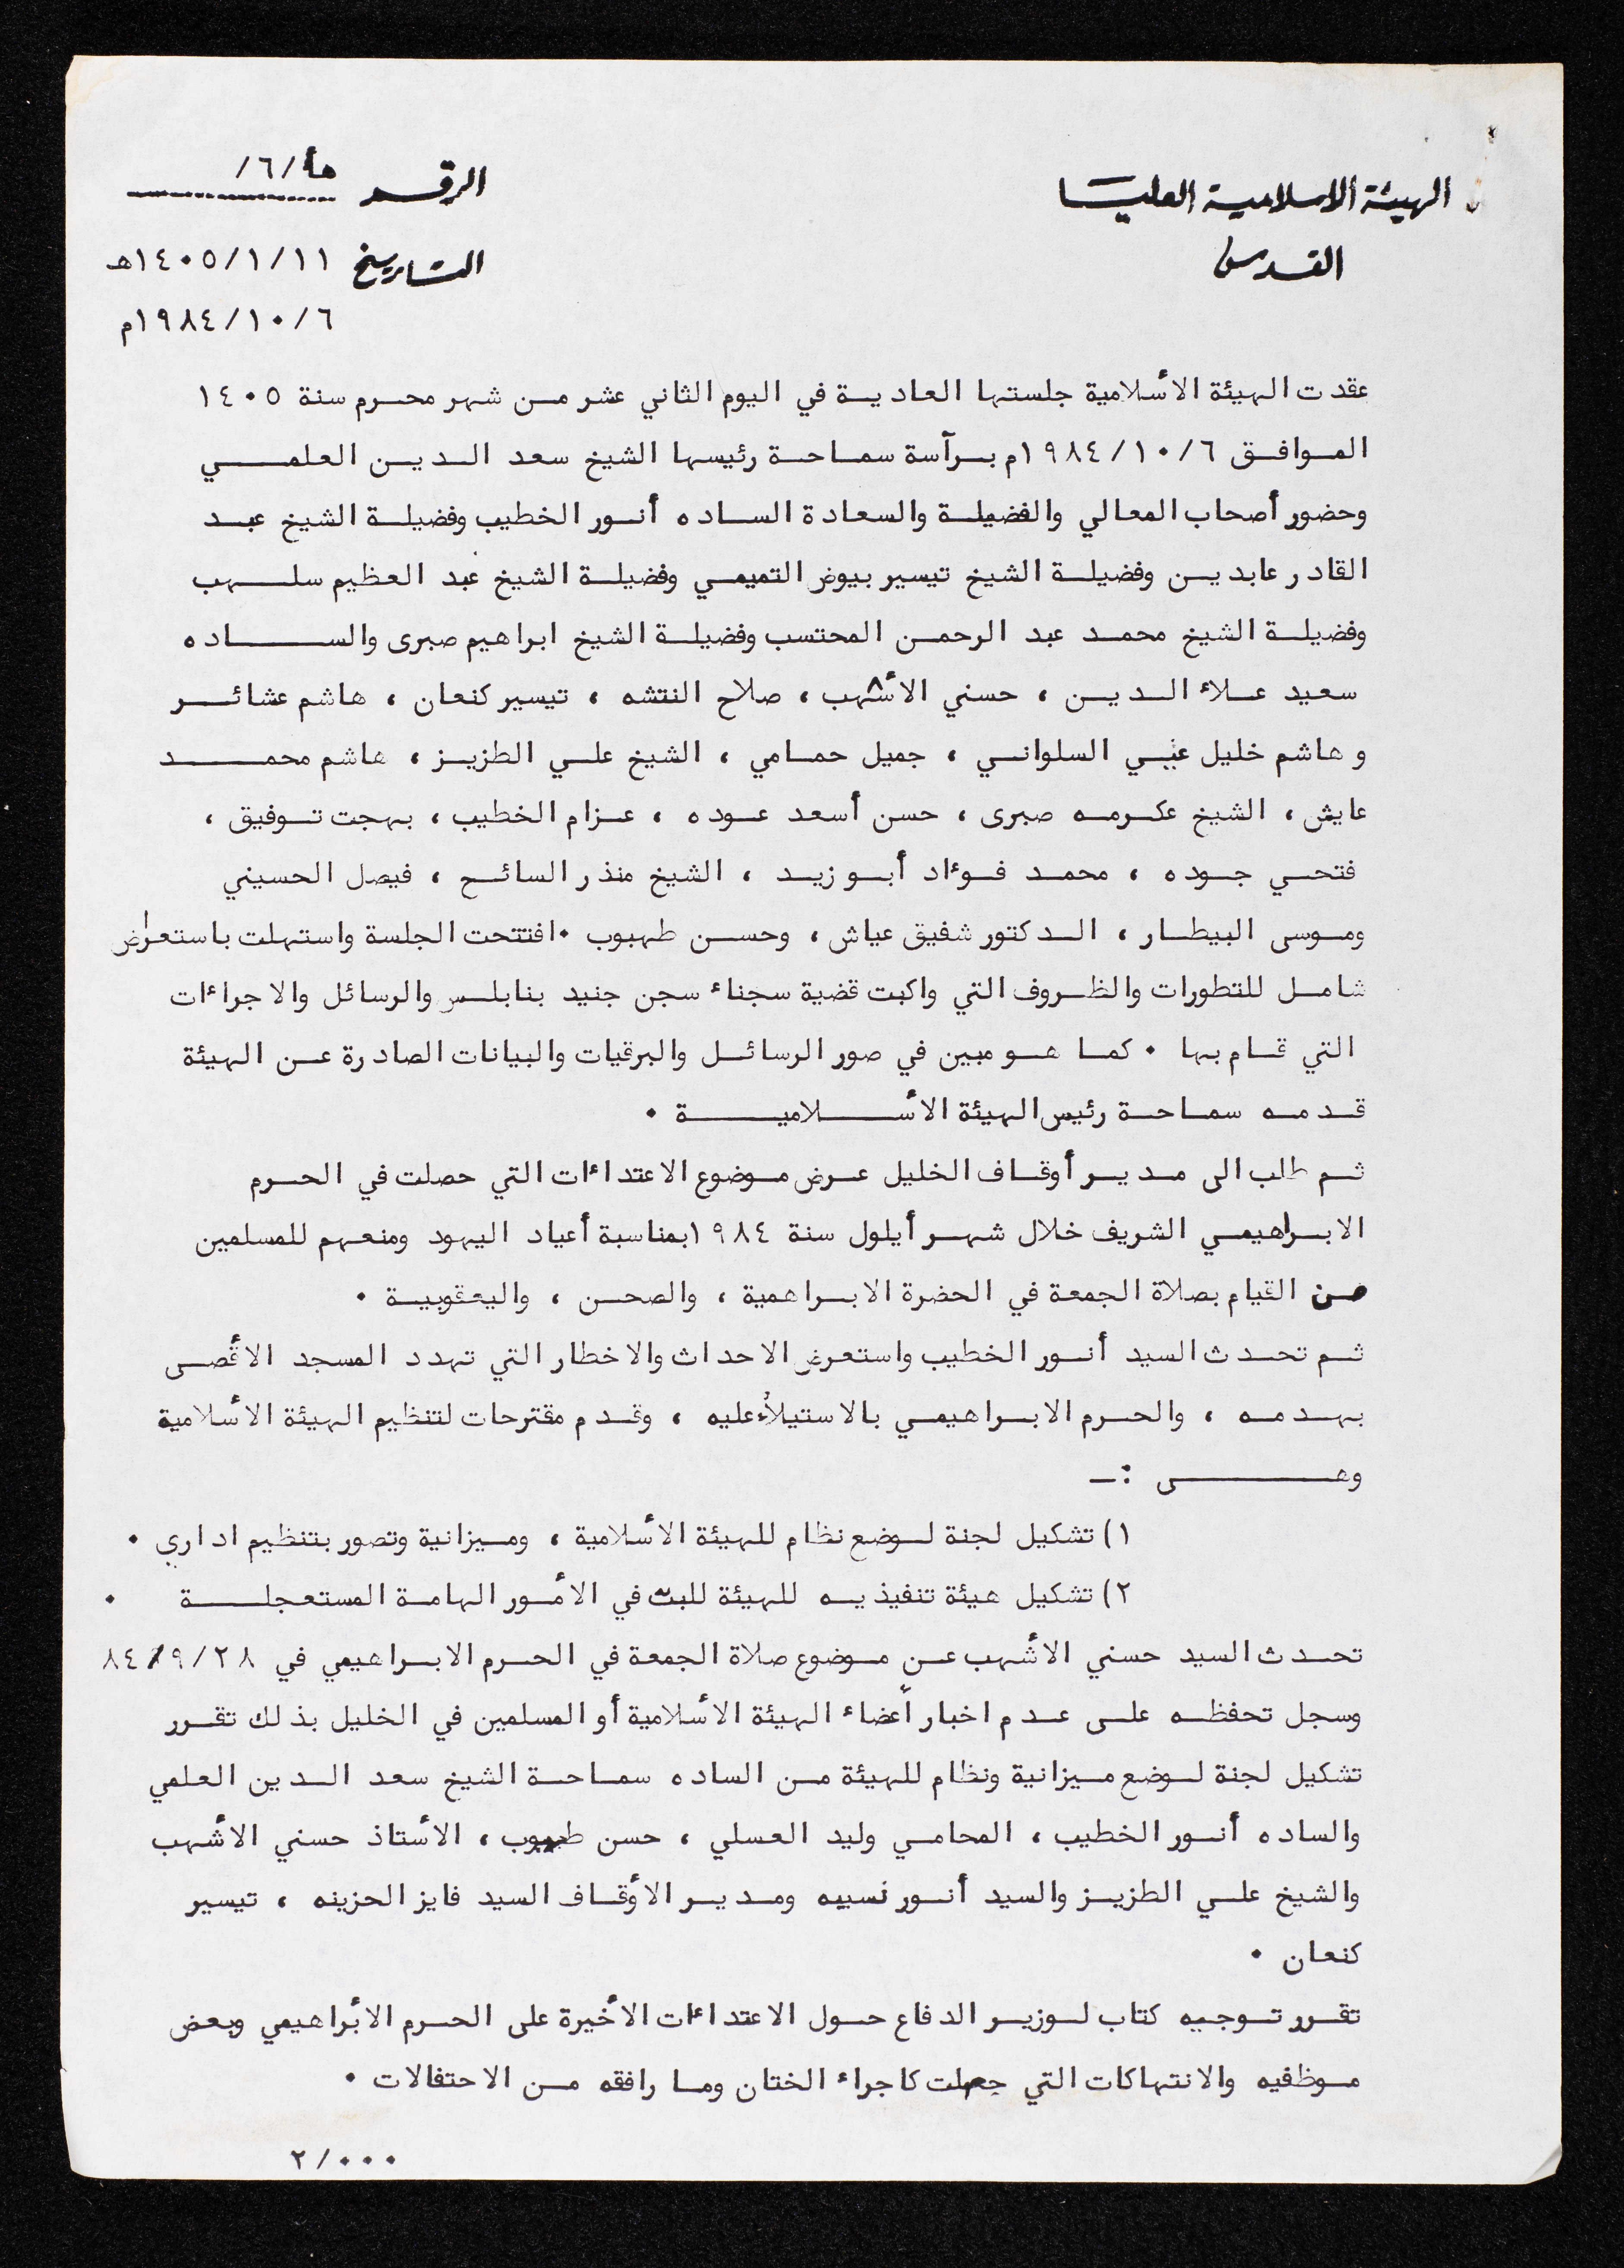 الهيئة الاسلامية العليا
القدس
الرقم هأ/٦/
التاريخ ١٤٠٥/١/١١هـ
١٩٨٤/١٠/٦م
عقدت الهيئة الأسلامية جلستها العادية في اليوم الثاني عشر من شهر محرم سنة ١٤٠٥
الموافق ١٩٨٤/١٠/٦م برآسة سماحة رئيسها الشيخ سعد الدين العلمي
وحضور أصحاب المعالي والفضيلة والسعادة الساده أنور الخطيب وفضيلة الشيخ عبد
القادر عابدين وفضيلة الشيخ تيسير بيوض التميمي وفضيلة الشيخ عبد العظيم سلهب
وفضيلة الشيخ محمد عبد الرحمن المحتسب وفضيلة الشيخ ابراهيم صبرى والساده
سعيد علاء الدين ، حسني الأشهب ، صلاح النتشه ، تيسير كنعان ، هاشم عشائر
و هاشم خليل السلواني ، جميل حمامي ، الشيخ علي الطزيز ، هاشم محمد
عايش ، الشيخ عكرمه صبرى ، حسن أسعد عوده ، عزام الخطيب ، بهجت توفيق ،
فتحي جوده ، محمد فوءاد أبو زيد ، الشيخ منذر السائح ، فيصل الحسيني
وموسى البيطار ، الدكتور شفيق عياش ، وحسن طهبوب ٠ افتتحت الجلسة واستهلت باستعراض
شامل للتطورات والظروف التي واكبت قضية سجناء سجن جنيد بنابلس والرسائل والاجراءات
التي قام بها ٠ كما هو مبين في صور الرسائل والبرقيات والبيانات الصادرة عن الهيئة
قدمه سماحة رئيس الهيئة الأسلامية ٠
ثم طلب الى مدير أوقاف الخليل عرض موضوع الاعتداءات التي حصلت في الحرم
الابراهيمي الشريف خلال شهر أيلول سنة ١٩٨٤ بمناسبة أعياد اليهود ومنعهم للمسلمين
من القيام بصلاة الجمعة في الحضرة الابراهمية ، والصحن ، واليعقوبية ٠
ثم تحدث السيد أنور الخطيب واستعرض الاحداث والاخطار التي تهدد المسجد الأقصى
بهدمه ، والحرم الابراهيمي بالاستيلاء عليه ، وقدم مقترحات لتنظيم الهيئة الأسلامية
وهى :ـ
١) تشكيل لجنة لوضع نظام للهيئة الأسلامية ، وميزانية وتصور بتنظيم اداري ٠
٢) تشكيل هيئة تنفيذيه للهيئة للبت في الأمور الهامة المستعجلة ٠
تحدث السيد حسني الأشهب عن موضوع صلاة الجمعة في الحرم الابراهيمي في ٨٤/٩/٢٨
وسجل تحفظه على عدم اخبار أعضاء الهيئة الأسلامية أو المسلمين في الخليل بذلك تقرر
تشكيل لجنة لوضع ميزانية ونظام للهيئة من الساده سماحة الشيخ سعد الدين العلمي
والساده أنور الخطيب ، المحامي وليد العسلي ، حسن طهبوب ، الأستاذ حسني الأشهب
والشيخ علي الطزيز والسيد أنور نسيبه ومدير الأوقاف السيد فايز الحزينه ، تيسير
كنعان ٠
تقرر توجيه كتاب لوزير الدفاع حول الاعتداءات الأخيرة على الحرم الأبراهيمي وبعض
موظفيه والانتهاكات التي حصلت كاجراء الختان وما رافقه من الاحتفالات ٠
٢/٠٠٠